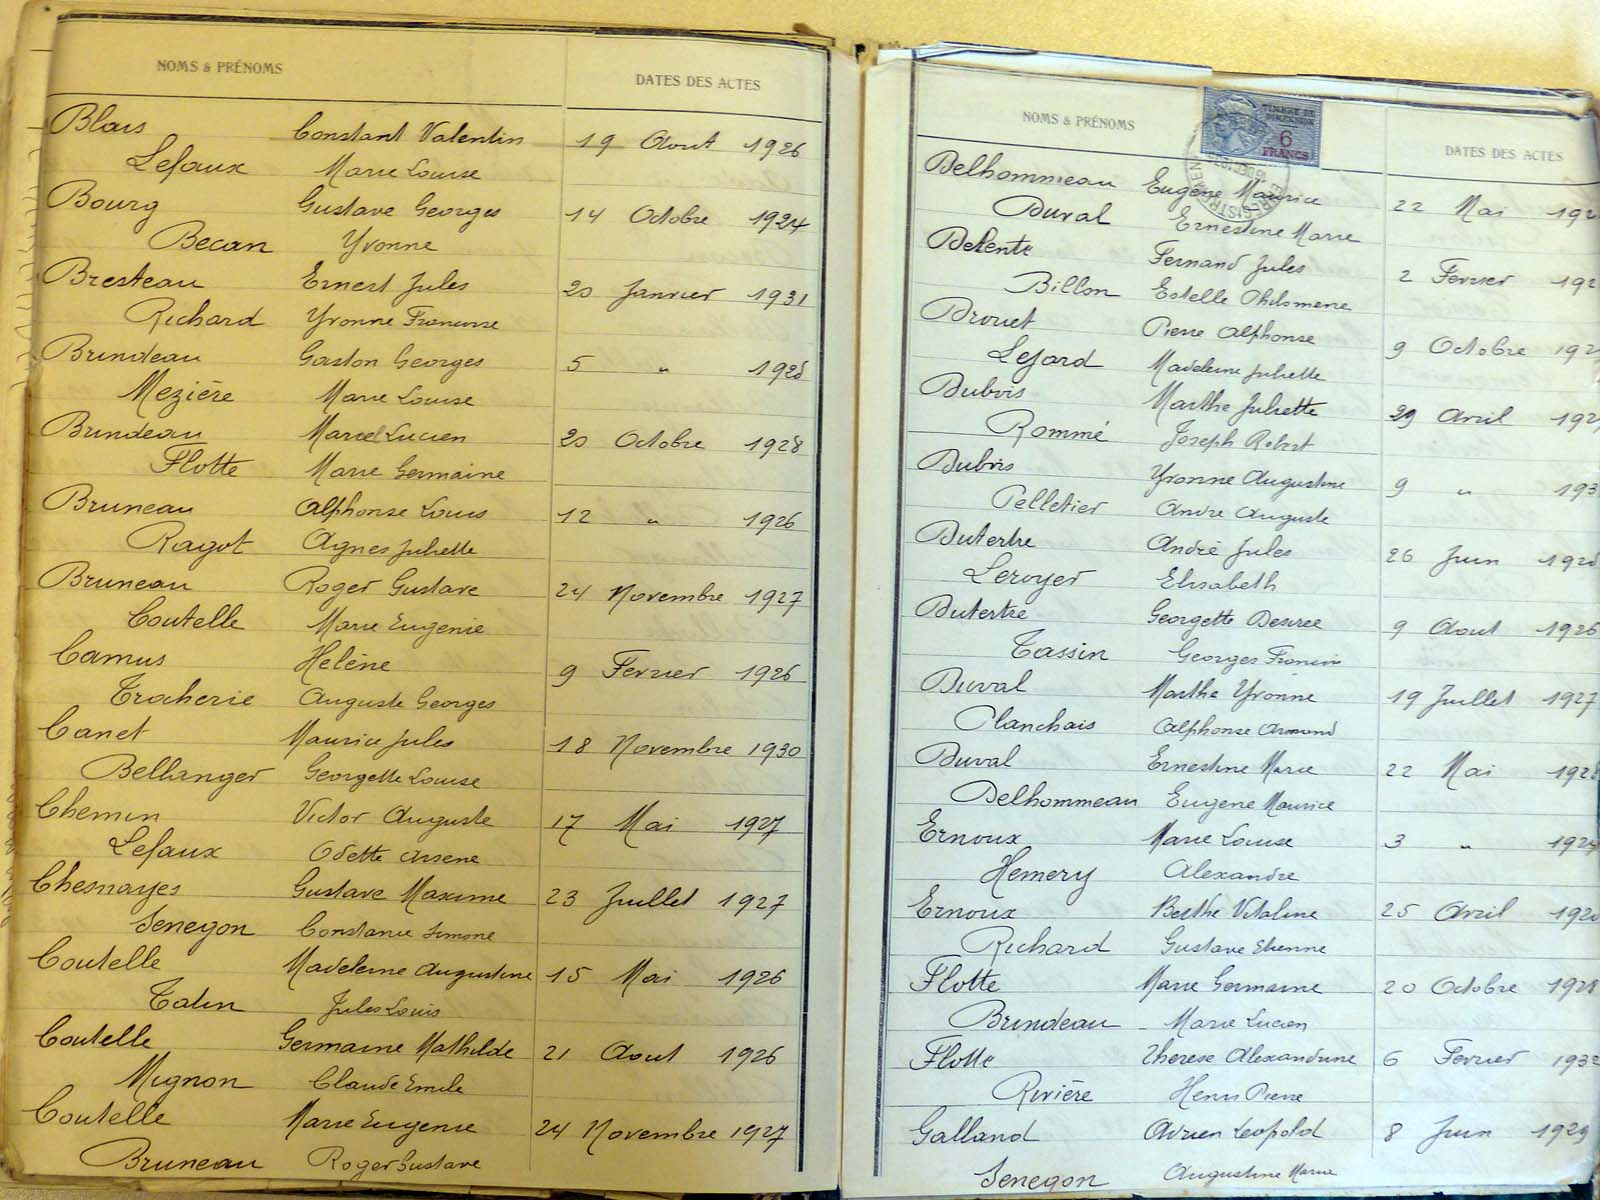 NOMS & PRÉNOMS DATES DES ACTES
Blais Constant Valentin 19 Aout 1926
Lefaux Marie Louise
Bourg Gustave Georges 14 Octobre 1924
Becan Yvonne
Bresteau Ernest Jules 20 Janvier 1931
Richard Yvonne Francine
Brindeau Gaston Georges 5 " 1928
Mezière Marie Louise
Brindeau Marcel Lucien 20 Octobre 1928
Flotte Marie Germaine
Bruneau Alphonse Louis 12 " 1926
Ragot Agnes Juliette
Bruneau Roger Gustave 24 Novembre 1927
Coutelle Marie Eugenie
Camus Helène 9 Fevrier 1926
Tracherie Auguste Georges
Canet Maurice Jules 18 Novembre 1930
Bellanger Georgette Louise
Chemin Victor Auguste 17 Mai 1927
Lefaux Odette Arsene
Chesnayes Gustave Maxime 23 Juillet 1927
Senegon Constance Simone
Coutelle Madeleine Augustine 15 Mai 1926
Tatin Jules Louis
Coutelle Germaine Mathilde 21 Aout 1926
Mignon Claude Emile
Coutelle Marie Eugenie 24 Novembre 1927
Bruneau Roger Gustave
TIMBRE DE DIMENSION
6 FRANCS
NOMS & PRÉNOMS DATES DES ACTES
Delhommeau Eugène Maurice 22 Mai 192
Duval Ernestine Marie
Detente Fernand Jules 2 Fevrier 192
Billon Estelle Philomene
Drouet Pierre Alphonse 9 Octobre 192
Lejard Madeleine Juliette
Dubois Marthe Juliette 29 Avril 192
Rommé Joseph Robert
Dubois Yvonne Augustine 9 " 193
Pelletier Andre Auguste
Dutertre André Jules 26 Juin 192
Leroyer Elisabeth
Dutertre Georgette Desiree 9 Aout 1926
Tassin Georges Francis
Duval Marthe Yvonne 19 Juillet 1927
Planchais Alphonse Armand
Duval Ernestine Marie 22 Mai 1928
Delhommeau Eugene Maurice
Ernoux Marie Louise 3 " 192
Hemery Alexandre
Ernoux Berthe Vitaline 25 Avril 192
Richard Gustave Etienne
Flotte Marie Germaine 20 Octobre 1928
Brindeau - Marie Lucien
Flotte Therese Alexandrine 6 Fevrier 1932
Rivière Henri Pierre
Galland Adrien Leopold 8 Juin 1929
Senegon Augustine Marie